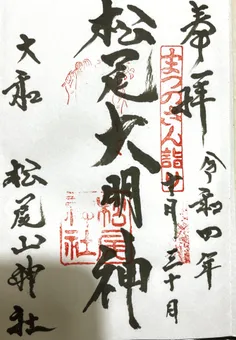 奉拝
令和四年
十月三十日
まつのさん詣
松尾大明神
松尾
神社
大和
松尾山神社